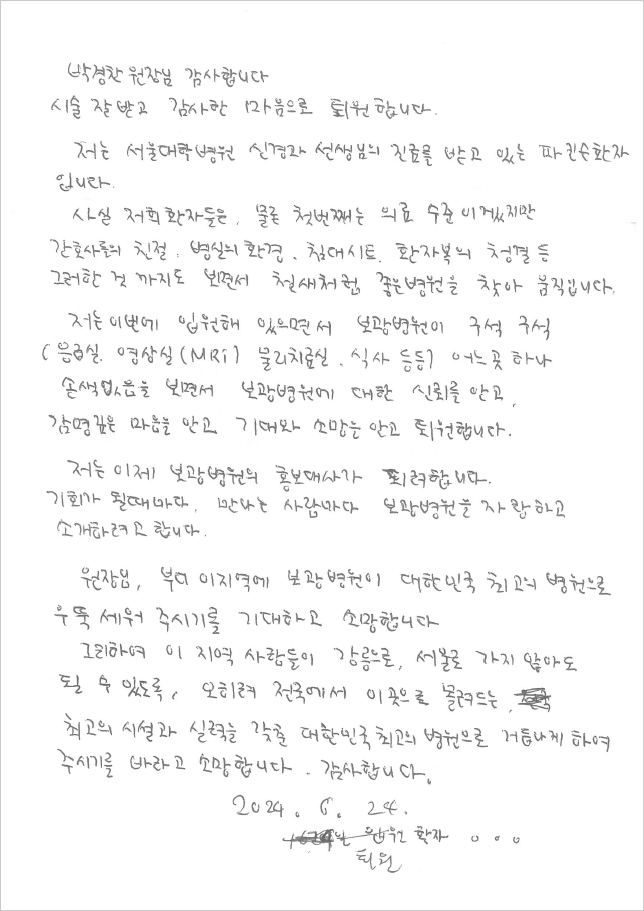 박경찬 원장님 감사합니다
시술 잘받고 감사한 마음으로 퇴원합니다.
저는 서울대학병원 신경과 선생님의 진료를 받고 있는 파킨슨환자
입니다.
사실 저희 환자들은, 물론 첫번째는 의료 수준이겠지만
간호사들의 친절, 병실의 환경, 침대시트, 환자복의 청결 등
그러한 것 까지도 보면서 철새처럼 좋은병원을 찾아 움직입니다.
저는 이번에 입원해 있으면서 보광병원이 구석 구석
(응급실. 영상실(MRi) 물리치료실. 식사 등등) 어느 곳 하나
손색없음을 보면서 보광병원에 대한 신뢰를 안고,
감명깊은 마음을 안고 기대와 소망을 안고 퇴원합니다.
저는 이제 보광병원의 홍보대사가 되려합니다.
기회가 될때마다, 만나는 사람마다 보광병원을 자랑하고
소개하려고 합니다.
원장님, 부디 이지역에 보광병원이 대한민국 최고의 병원으로
우뚝 세워 주시기를 기대하고 소망합니다
그리하여 이 지역 사람들이 강릉으로, 서울로 가지 않아도
될 수 있도록, 오히려 전국에서 이곳으로 몰려드는,
최고의 시설과 실력을 갖춘 대한민국 최고의 병원으로 거듭나게 하여
주시기를 바라고 소망합니다. 감사합니다.
2024. 6. 24.
입원 환자 o o o
퇴원